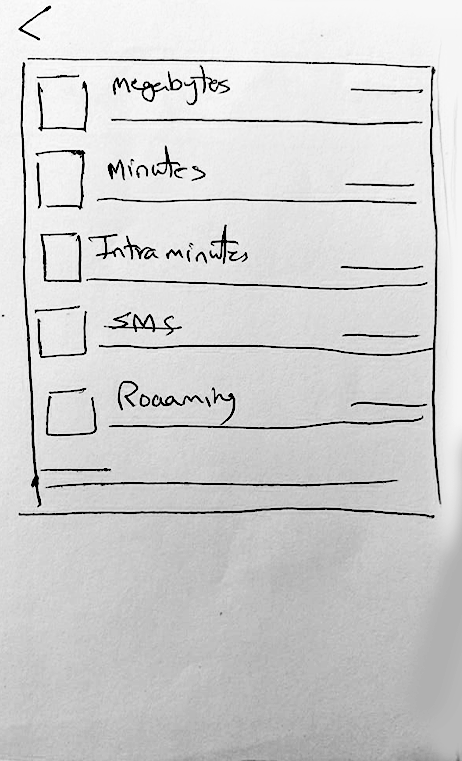 <
Megabytes
Minutes
Intra minutes
SMS
Roaaming